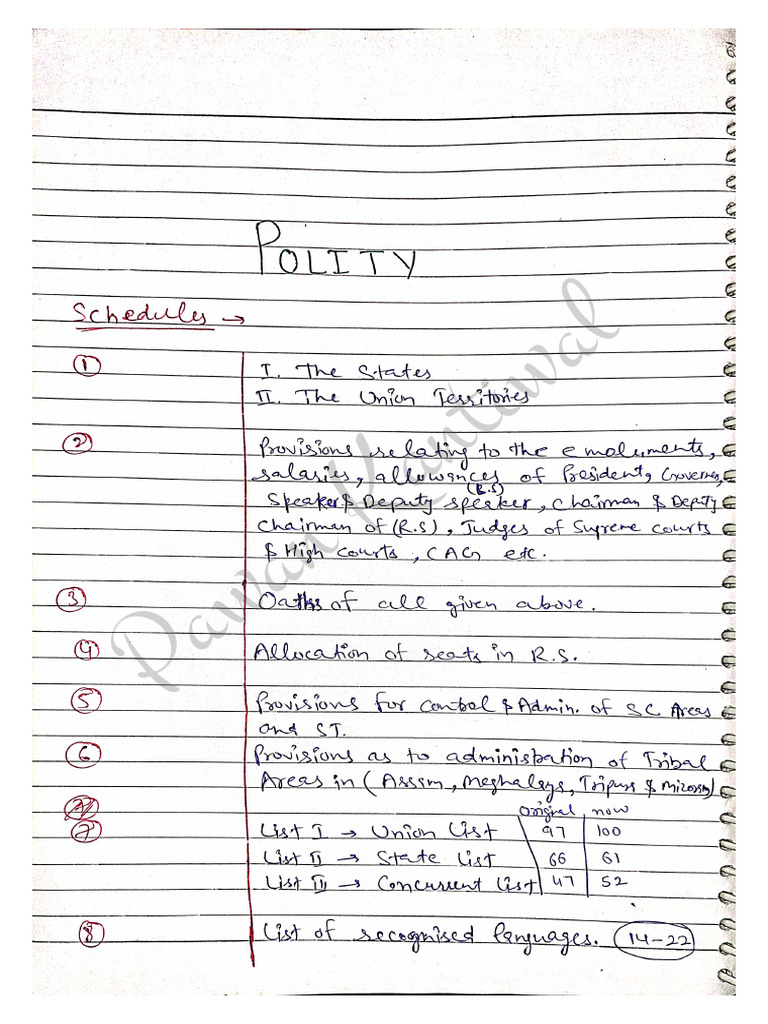 POLITY
Schedules →
① I. The States
II. The Union Territories
② Provisions relating to the emoluments,
salaries, allowances of President, Governor,
(R.S)
Speaker & Deputy speaker, Chairman & Deputy
chairman of (R.S), Judges of Supreme courts
& High courts, CAG etc.
③ Oaths of all given above.
④ Allocation of seats in R.S.
⑤ Provisions for control & Admin. of SC Areas
and ST.
⑥ Provisions as to administration of Tribal
Areas in (Assam, Meghalaya, Tripura & Mizoram)
original now
⑦ List I → Union List 97 100
List II → State List 66 61
List III → Concurrent List 47 52
⑧ List of recognised languages. (14-22)
Pawan Kantiwal